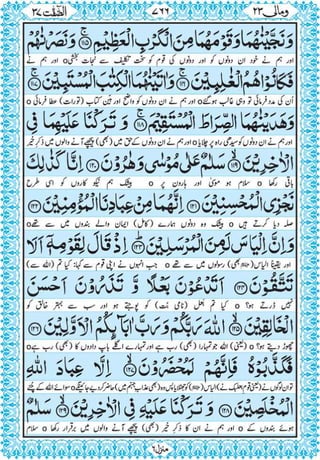 الصّٰفّٰت ۳۷
۷۶۶
وَمَالِیَ ۲۳
وَنَجَّيْنٰهُمَا وَقَوْمَهُمَا مِنَ الْكَرْبِ الْعَظِيْمِ ۝۱۱۵ وَنَصَرْنٰهُمْ
اور ہم نے خود ان دونوں کو اور دونوں کی قوم کو سخت تکلیف سے نجات بخشی ۝ اور ہم نے
فَكَانُوْا هُمُ الْغٰلِبِيْنَ ۝۱۱۶ وَاٰتَيْنٰهُمَا الْكِتٰبَ الْمُسْتَبِيْنَ ۝۱۱۷
ان کی مدد فرمائی تو وہی غالب ہوگئے ۝ اور ہم نے ان دونوں کو واضح اور بیّن کتاب (تورات) عطا فرمائی ۝
وَهَدَيْنٰهُمَا الصِّرَاطَ الْمُسْتَقِيْمَ ۝۱۱۸ وَتَرَكْنَا عَلَيْهِمَا فِي
اور ہم نے ان دونوں کو سیدھی راہ پر چلایا ۝ اور ہم نے ان دونوں کے حق میں (بھی) پیچھے آنے والوں میں ذکرِ خیر
الْاٰخِرِيْنَ ۝۱۱۹ سَلٰمٌ عَلٰى مُوْسٰى وَهٰرُوْنَ ۝۱۲۰ اِنَّا كَذٰلِكَ
باقی رکھا ۝ سلام ہو موسیٰ اور ہارون پر ۝ بیشک ہم نیکو کاروں کو اسی طرح
نَجْزِي الْمُحْسِنِيْنَ ۝۱۲۱ اِنَّهُمَا مِنْ عِبَادِنَا الْمُؤْمِنِيْنَ ۝۱۲۲
صلہ دیا کرتے ہیں ۝ بیشک وہ دونوں ہمارے (کامل) ایمان والے بندوں میں سے تھے ۝
وَاِنَّ اِلْيَاسَ لَمِنَ الْمُرْسَلِيْنَ ۝۱۲۳ اِذْ قَالَ لِقَوْمِهٖٓ اَلَا
اور یقیناً الیاس (بھی) رسولوں میں سے تھے ۝ جب انہوں نے اپنی قوم سے کہا: کیا تم (اللہ سے)
تَتَّقُوْنَ ۝۱۲۴ اَتَدْعُوْنَ بَعْلًا وَّتَذَرُوْنَ اَحْسَنَ
نہیں ڈرتے ہو؟ ۝ کیا تم بعل (نامی بت) کو پوجتے ہو اور سب سے بہتر خالق کو
الْخَالِقِيْنَ ۝۱۲۵ اللّٰهَ رَبَّكُمْ وَرَبَّ اٰبَآئِكُمُ الْاَوَّلِيْنَ ۝۱۲۶
چھوڑ دیتے ہو؟ ۝ (یعنی) اللہ جو تمہارا (بھی) رب ہے اور تمہارے اگلے باپ دادوں کا (بھی) رب ہے ۝
فَكَذَّبُوْهُ فَاِنَّهُمْ لَمُحْضَرُوْنَ ۝۱۲۷ اِلَّا عِبَادَ اللّٰهِ
سوائے اللہ کے چنے
الْمُخْلَصِيْنَ ۝۱۲۸ وَتَرَكْنَا عَلَيْهِ فِي الْاٰخِرِيْنَ ۝۱۲۹ سَلٰمٌ
ہوئے بندوں کے ۝ اور ہم نے ان کا ذکرِ خیر (بھی) پیچھے آنے والوں میں برقرار رکھا ۝ سلام
منزل ۶